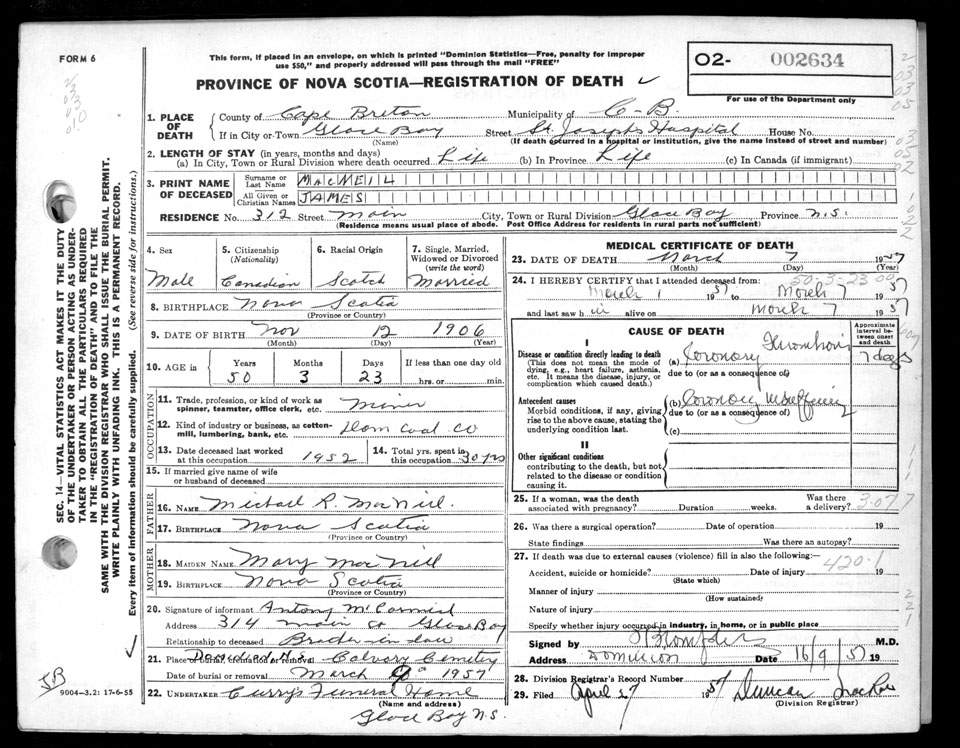 FORM 6
This form, if placed in an envelope, on which is printed "Dominion Statistics—Free, penalty for improper
use $50," and properly addressed will pass through the mail "FREE"
PROVINCE OF NOVA SCOTIA—REGISTRATION OF DEATH ✓
O2- 002634
For use of the Department only
1. PLACE OF DEATH
County of Cape Breton Municipality of C-B.
If in City or Town Glace Bay Street St. Josephs Hospital House No.
(Name) (If death occurred in a hospital or institution, give the name instead of street and number)
2. LENGTH OF STAY (in years, months and days)
(a) In City, Town or Rural Division where death occurred Life (b) In Province Life (c) In Canada (if immigrant)
3. PRINT NAME OF DECEASED
Surname or Last Name MACNEIL
All Given or Christian Names JAMES
RESIDENCE No. 312 Street Main City, Town or Rural Division Glace Bay Province N.S.
(Residence means usual place of abode. Post Office Address for residents in rural parts not sufficient)
4. Sex
Male
5. Citizenship (Nationality)
Canadian
6. Racial Origin
Scotch
7. Single, Married, Widowed or Divorced (write the word)
Married
8. BIRTHPLACE Nova Scotia
(Province or Country)
9. DATE OF BIRTH Nov 12 1906
(Month) (Day) (Year)
10. AGE in Years Months Days If less than one day old
50 3 23 hrs. or min.
OCCUPATION
11. Trade, profession, or kind of work as spinner, teamster, office clerk, etc. Miner
12. Kind of industry or business, as cotten-mill, lumbering, bank, etc. Dom Coal Co
13. Date deceased last worked at this occupation 1952
14. Total yrs. spent in this occupation 30 yrs
15. If married give name of wife or husband of deceased
FATHER
16. NAME Michael R. MacNeil.
17. BIRTHPLACE Nova Scotia
(Province or Country)
MOTHER
18. MAIDEN NAME Mary MacNeil
19. BIRTHPLACE Nova Scotia
(Province or Country)
20. Signature of informant Antony
Address 314 Main St Glace Bay
Relationship to deceased Brother-in-law
21. Place of burial, cremation or removal Calvary Cemetery
Date of burial or removal March 9 1957
22. UNDERTAKER Curry's Funeral Home
(Name and address)
Glace Bay N.S.
MEDICAL CERTIFICATE OF DEATH
23. DATE OF DEATH March 7 1957
(Month) (Day) (Year)
50-3-23
24. I HEREBY CERTIFY that I attended deceased from:
March 1 1957 to March 7 1957
and last saw h alive on March 7 1957
CAUSE OF DEATH
Approximate interval between onset and death
I
Disease or condition directly leading to death
(This does not mean the mode of dying, e.g., heart failure, asthenia, etc. It means the disease, injury, or complication which caused death.)
(a) Coronary Thrombosis 7 days
due to (or as a consequence of)
Antecedent causes
Morbid conditions, if any, giving rise to the above cause, stating the underlying condition last.
(b) Coronary Insufficiency
due to (or as a consequence of)
(c)
II
Other significant conditions
contributing to the death, but not related to the disease or condition causing it.
25. If a woman, was the death associated with pregnancy? Duration weeks. Was there a delivery?
26. Was there a surgical operation? Date of operation 19
State findings Was there an autopsy?
27. If death was due to external causes (violence) fill in also the following:—
420.1
Accident, suicide or homicide? Date of injury 19
(State which)
Manner of injury
(How sustained)
Nature of injury
Specify whether injury occurred in industry, in home, or in public place
Signed by M.D.
Address Dominion Date 16/9/57 19
28. Division Registrar's Record Number
29. Filed April 27 1957 Duncan
(Division Registrar)
SEC. 14—VITAL STATISTICS ACT MAKES IT THE DUTY
OF THE UNDERTAKER OR PERSON ACTING AS UNDER-
TAKER TO OBTAIN ALL THE PARTICULARS REQUIRED
IN THE "REGISTRATION OF DEATH" AND TO FILE THE
SAME WITH THE DIVISION REGISTRAR WHO SHALL ISSUE THE BURIAL PERMIT.
WRITE PLAINLY WITH UNFADING INK. THIS IS A PERMANENT RECORD.
Every item of information should be carefully supplied. (See reverse side for instructions.)
JB
9004-3.2: 17-6-55